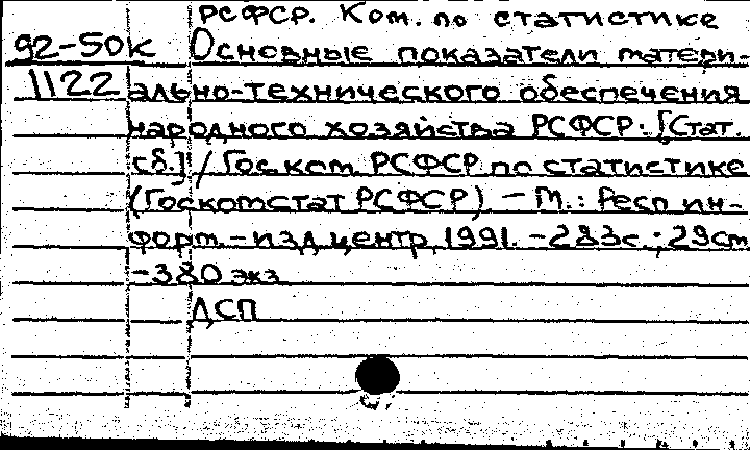 РСФСР. Ком. по статистике
92-50к Основные показатели матери-
1122 ально-технического обеспечения
народного хозяйства РСФСР: [Стат.
сб.] / Госком РСФСР по статистике
(Госкомстат РСФСР) – М.: Респ ин-
форм.-изд центр, 1991. - 283с.; 29см
-380 экз
ДСП